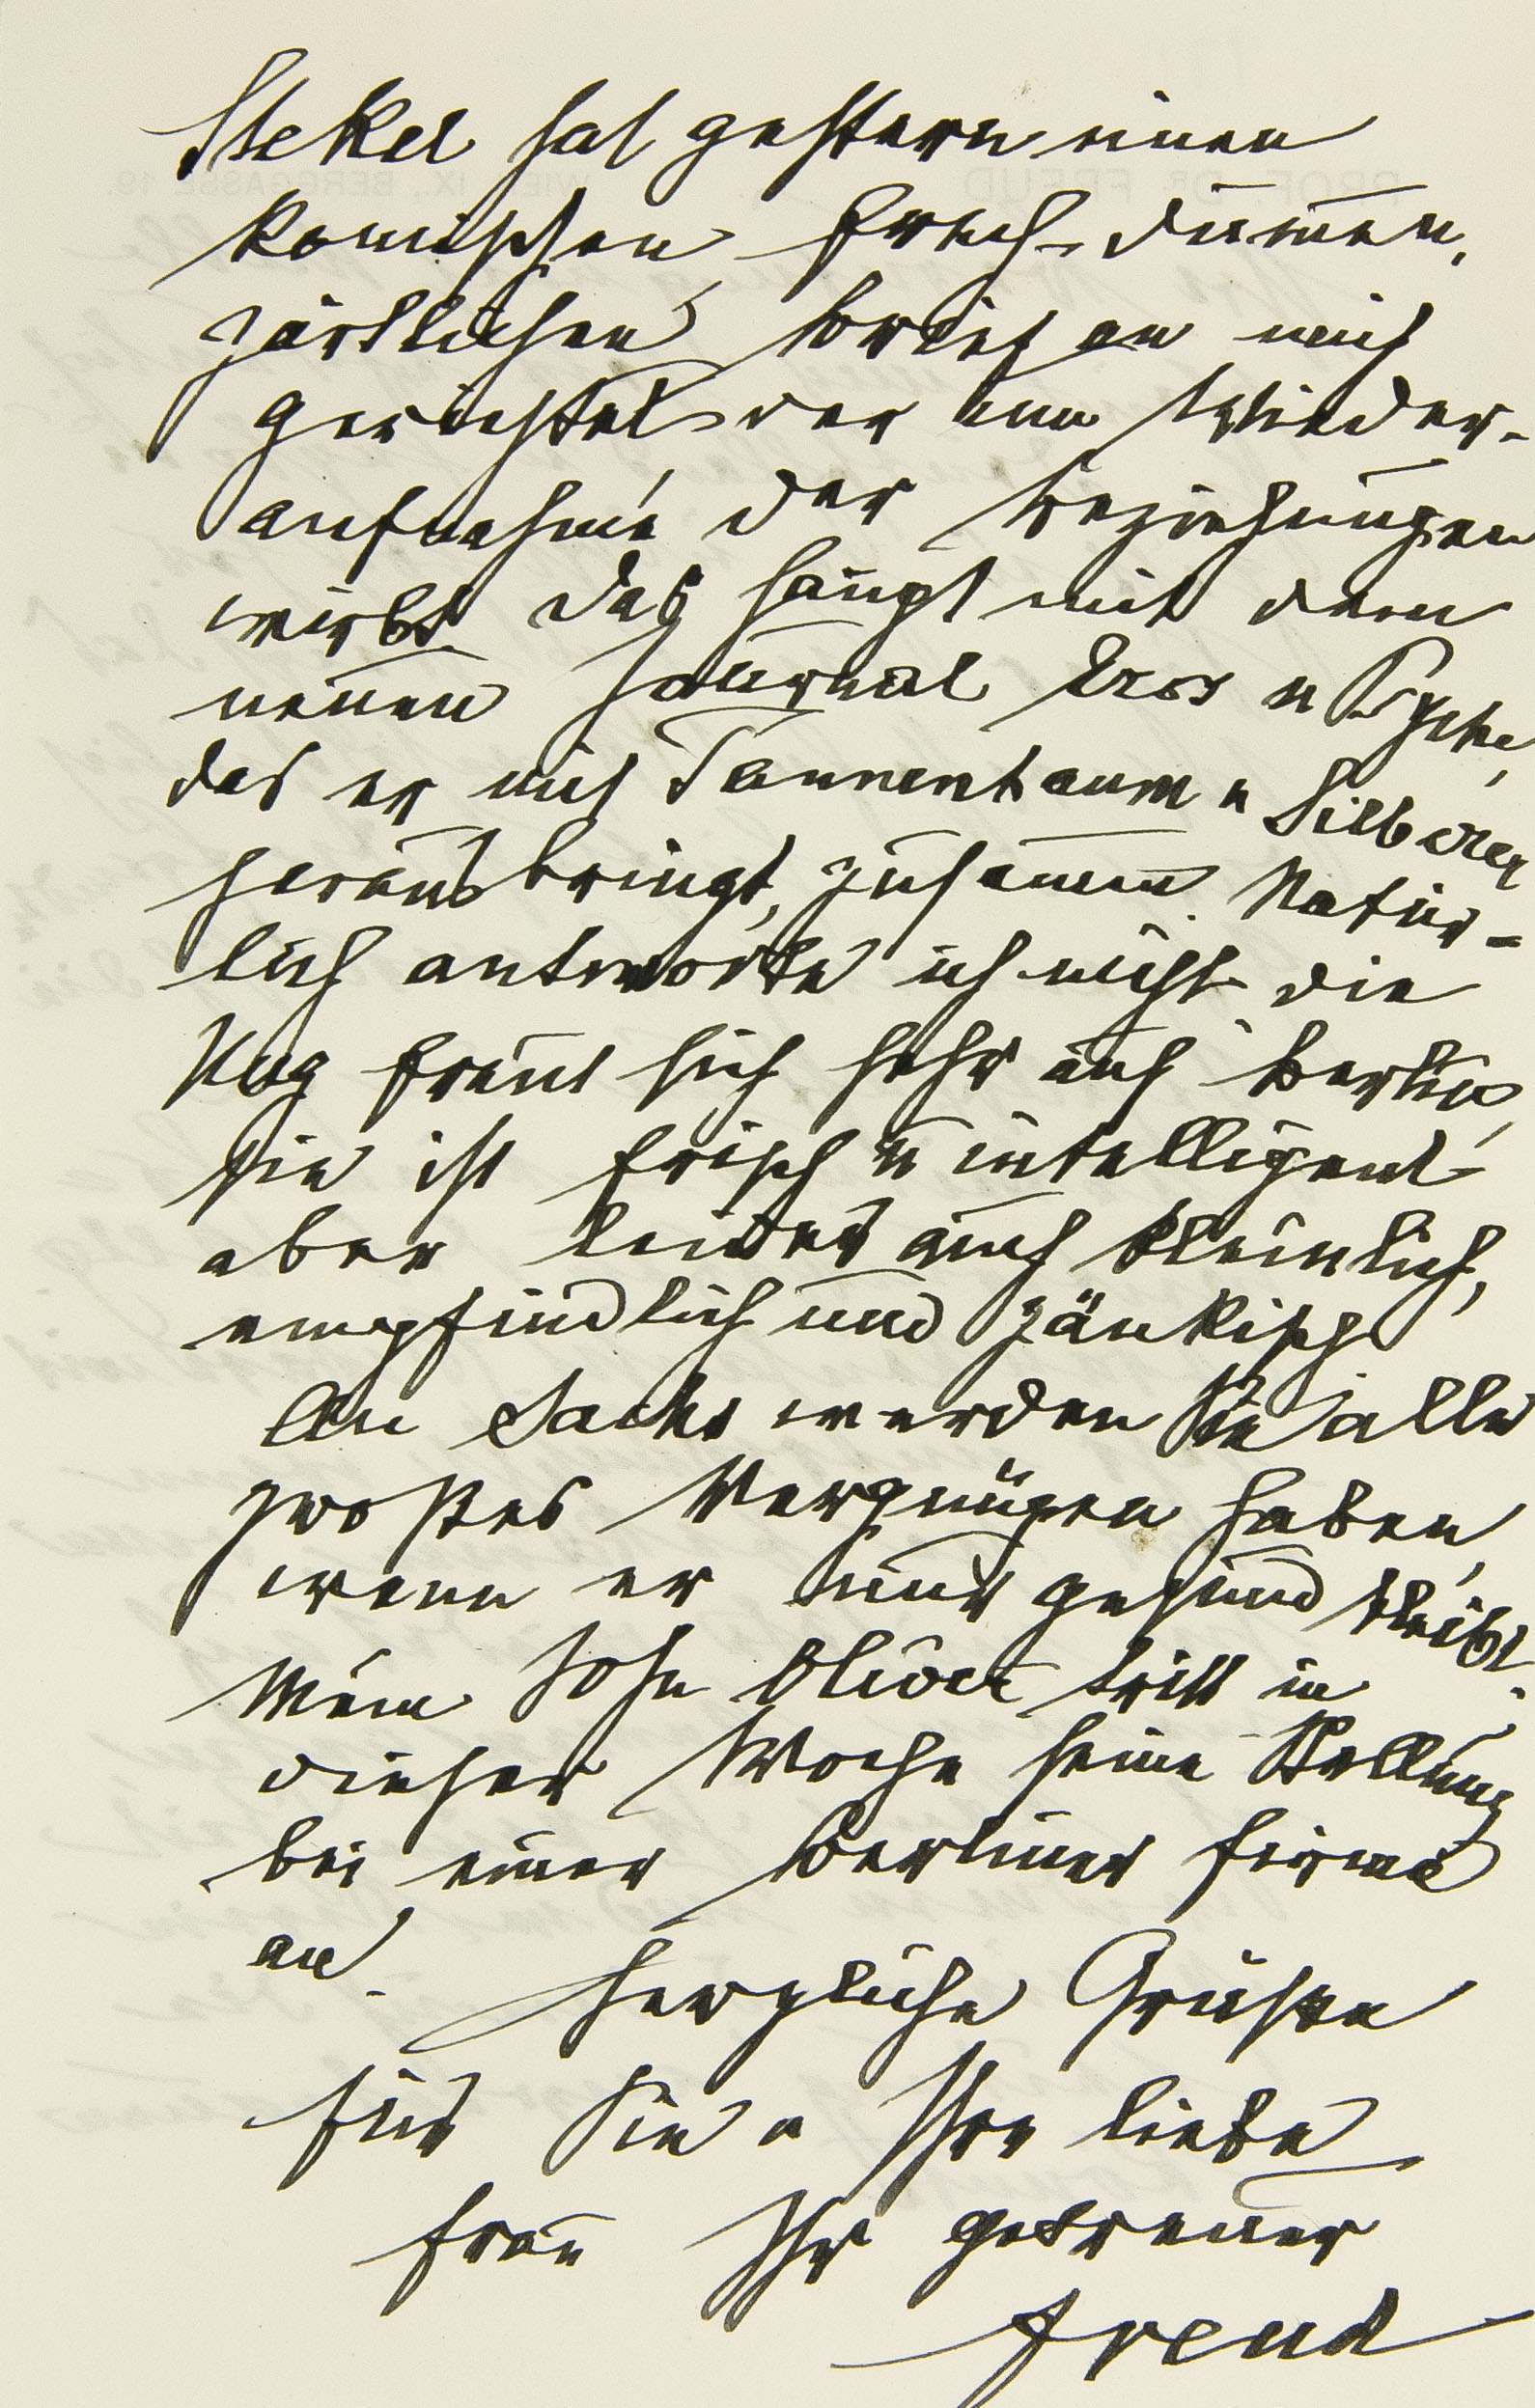 Stekel hat gestern einen
komischen frech-dummen,
zärtlichen Brief an mich
gerichtet der um Wieder-
aufnahme der Beziehungen
wirbt. Das hängt mit dem
neuen Journal Eros u Psyche,
das er mit Tannenbaum u Silberer
herausbringt, zusammen. Natür-
lich antworte ich nicht. Die
Hug freut sich sehr auf Berlin,
sie ist frisch u intelligent
aber leider auch kleinlich,
empfindlich und zänkisch
An Sachs werden Sie alle
großes Vergnügen haben,
wenn er nur gesund bleibt.
Mein Sohn Oliver tritt in
dieser Woche seine Stellung
bei einer Berliner Firma
an.
Herzliche Grüße
für Sie u Ihre liebe
Frau Ihr getreuer
Freud
PROF. Dr. FREUD WIEN, IX. BERGGASSE 19.